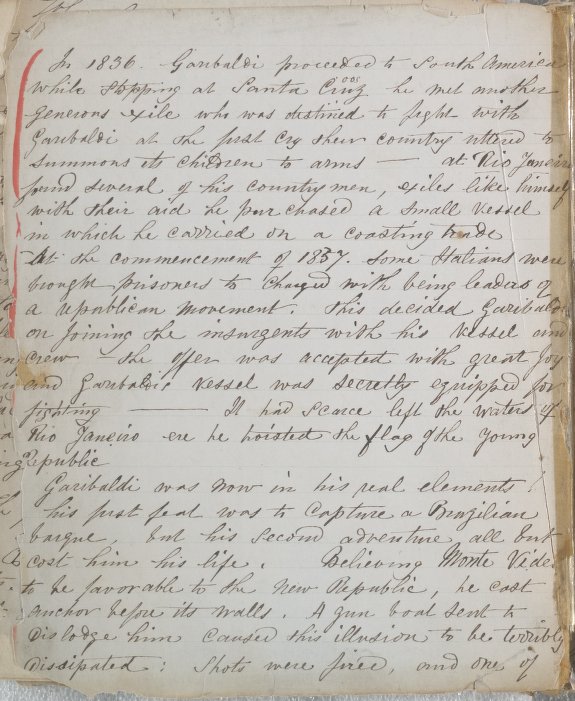 In 1836. Garibaldi proceeded to South America
while stopping at Santa Cruz he met another
generous exile who was destined to fight with
Garibaldi at the first cry their country uttered to
summons its children to arms — at Rio Janeiro
found several of his countrymen, exiles like himself
with their aid he purchased a small vessel
in which he carried on a coasting trade
At the commencement of 1837. some Italians were
brought prisoners to charged with being leaders of
a republican movement. This decided Garibaldi
on joining the insurgents with his vessel and
crew the offer was accepted with great joy
and Garibaldis vessel was secretly equipped for
fighting — It had scarce left the waters of
Rio Janeiro ere he hoisted the flag of the young
Republic
Garibaldi was now in his real elements!
his first feat was to capture a Brazilian
barque, but his second adventure all but
cost him his life. Believing Monte Video
to be favorable to the New Republic, he cast
anchor before its walls. A gun boat sent to
dislodge him caused this illusion to be terribly
dissipated: Shots were fired, and one of